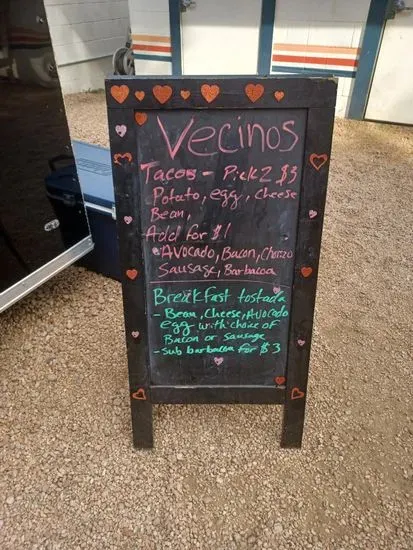 Vecinos
Tacos - Pick 2 $3
Potato, egg, cheese
Bean,
Add for $1
Avocado, Bacon, Chorizo
Sausage, Barbacoa
Breakfast tostada
- Bean, Cheese, Avocado
egg with choice of
Bacon or sausage
- sub barbacoa for $3